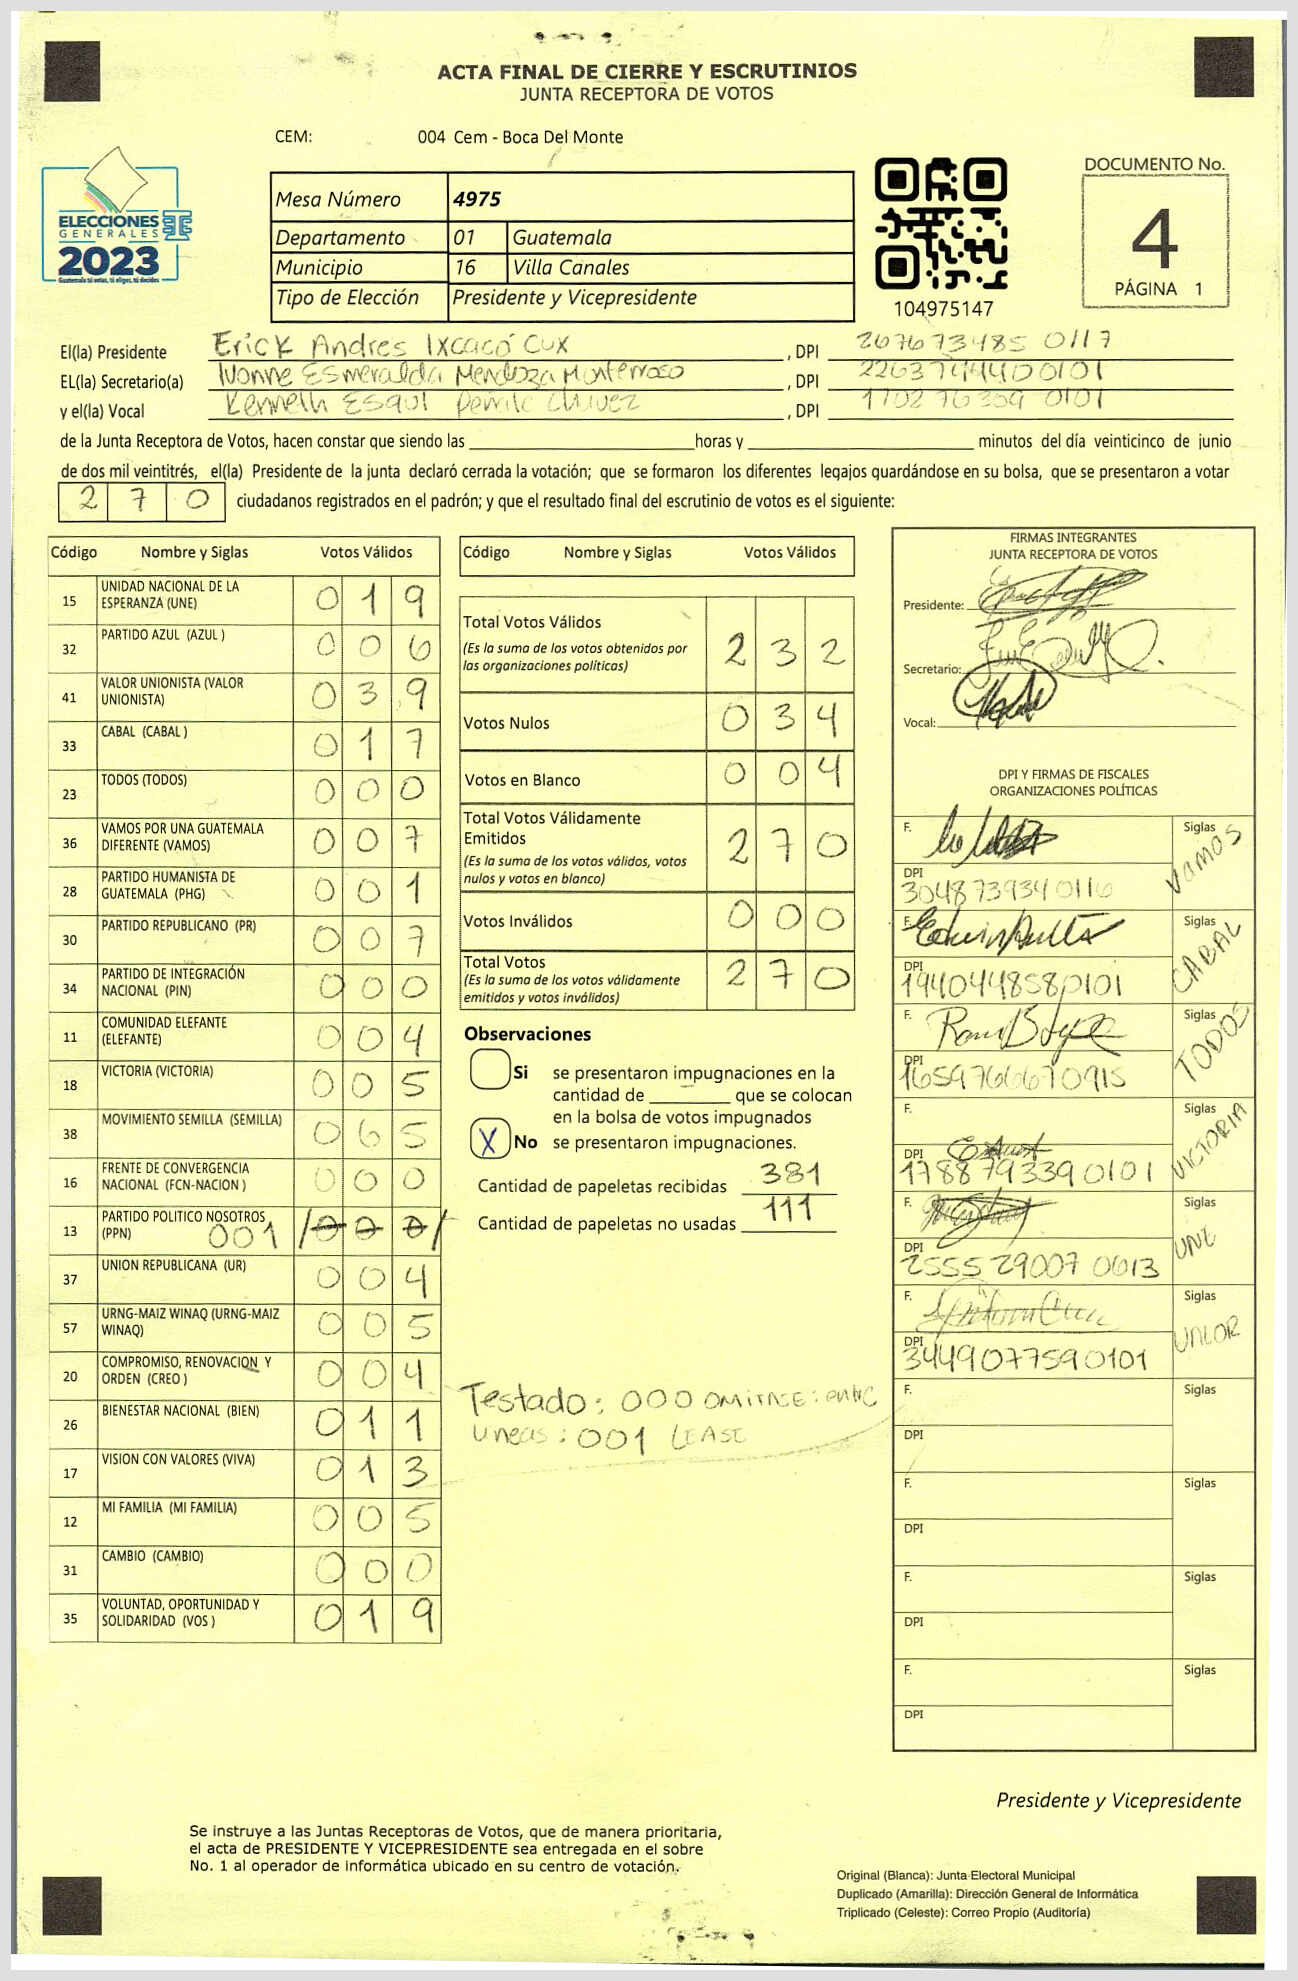 ACTA FINAL DE CIERRE Y ESCRUTINIOS
JUNTA RECEPTORA DE VOTOS
CEM: 004 Cem - Boca Del Monte
ELECCIONES
GENERALES
2023
Guatemala tú votas, tú eliges, tú decides
Mesa Número 4975
Departamento 01 Guatemala
Municipio 16 Villa Canales
Tipo de Elección Presidente y Vicepresidente
104975147
DOCUMENTO No.
4
PÁGINA 1
El(la) Presidente Erick Andres Ixcacó Cux , DPI 267673485 0117
EL(la) Secretario(a) Ivonne Esmeralda Mendoza Monterroso , DPI
y el(la) Vocal Kenneth Chivez , DPI 170276309 0101
de la Junta Receptora de Votos, hacen constar que siendo las horas y minutos del día veinticinco de junio
de dos mil veintitrés, el(la) Presidente de la junta declaró cerrada la votación; que se formaron los diferentes legajos guardándose en su bolsa, que se presentaron a votar
270 ciudadanos registrados en el padrón; y que el resultado final del escrutinio de votos es el siguiente:
Código Nombre y Siglas Votos Válidos
15 UNIDAD NACIONAL DE LA ESPERANZA (UNE) 019
32 PARTIDO AZUL (AZUL ) 006
41 VALOR UNIONISTA (VALOR UNIONISTA) 039
33 CABAL (CABAL ) 017
23 TODOS (TODOS) 000
36 VAMOS POR UNA GUATEMALA DIFERENTE (VAMOS) 007
28 PARTIDO HUMANISTA DE GUATEMALA (PHG) 001
30 PARTIDO REPUBLICANO (PR) 007
34 PARTIDO DE INTEGRACIÓN NACIONAL (PIN) 000
11 COMUNIDAD ELEFANTE (ELEFANTE) 004
18 VICTORIA (VICTORIA) 005
38 MOVIMIENTO SEMILLA (SEMILLA) 065
16 FRENTE DE CONVERGENCIA NACIONAL (FCN-NACION ) 000
13 PARTIDO POLITICO NOSOTROS (PPN) 001 /000/
37 UNION REPUBLICANA (UR) 004
57 URNG-MAIZ WINAQ (URNG-MAIZ WINAQ) 005
20 COMPROMISO, RENOVACION Y ORDEN (CREO ) 004
26 BIENESTAR NACIONAL (BIEN) 011
17 VISION CON VALORES (VIVA) 013
12 MI FAMILIA (MI FAMILIA) 005
31 CAMBIO (CAMBIO) 000
35 VOLUNTAD, OPORTUNIDAD Y SOLIDARIDAD (VOS ) 019
Código Nombre y Siglas Votos Válidos
Total Votos Válidos 232
(Es la suma de los votos obtenidos por
las organizaciones políticas)
Votos Nulos 034
Votos en Blanco 004
Total Votos Válidamente
Emitidos 270
(Es la suma de los votos válidos, votos
nulos y votos en blanco)
Votos Inválidos 000
Total Votos 270
(Es la suma de los votos válidamente
emitidos y votos inválidos)
Observaciones
Si se presentaron impugnaciones en la
cantidad de que se colocan
en la bolsa de votos impugnados
X No se presentaron impugnaciones.
Cantidad de papeletas recibidas 381
Cantidad de papeletas no usadas 111
Testado: 000 OMITASE: entre
lineas: 001 LEASE
FIRMAS INTEGRANTES
JUNTA RECEPTORA DE VOTOS
Presidente:
Secretario:
Vocal:
DPI Y FIRMAS DE FISCALES
ORGANIZACIONES POLÍTICAS
F. Siglas VAMOS
DPI 3048739340116
F. Siglas CABAL
DPI 1940448580101
F. Siglas TODOS
DPI 1659766670915
F. Siglas VICTORIA
DPI 1788793390101
F. Siglas UNE
DPI 2555290070613
F. Siglas VALOR
DPI 3449077590101
F. Siglas
DPI
F. Siglas
DPI
F. Siglas
DPI
F. Siglas
DPI
Presidente y Vicepresidente
Se instruye a las Juntas Receptoras de Votos, que de manera prioritaria,
el acta de PRESIDENTE Y VICEPRESIDENTE sea entregada en el sobre
No. 1 al operador de informática ubicado en su centro de votación.
Original (Blanca): Junta Electoral Municipal
Duplicado (Amarilla): Dirección General de Informática
Triplicado (Celeste): Correo Propio (Auditoría)